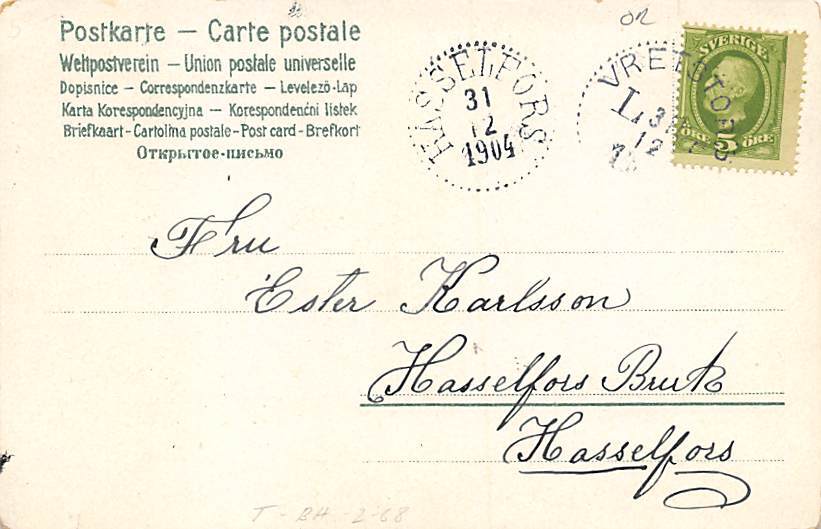 Postkarte — Carte postale
Weltpostverein — Union postale universelle
Dopisnice — Correspondenzkarte — Levelező-Lap
Karta Korespondencyjna — Korespondenční lístek
Briefkaart - Cartolina postale - Post card - Brefkort
Открытое-письмо
HASSELFORS
31
12
1904
VRETSTORP
L.
31
12
SVERIGE
ÖRE 5 ÖRE
Fru
Ester Karlsson
Hasselfors Bruk
Hasselfors
T - BH - 2-68